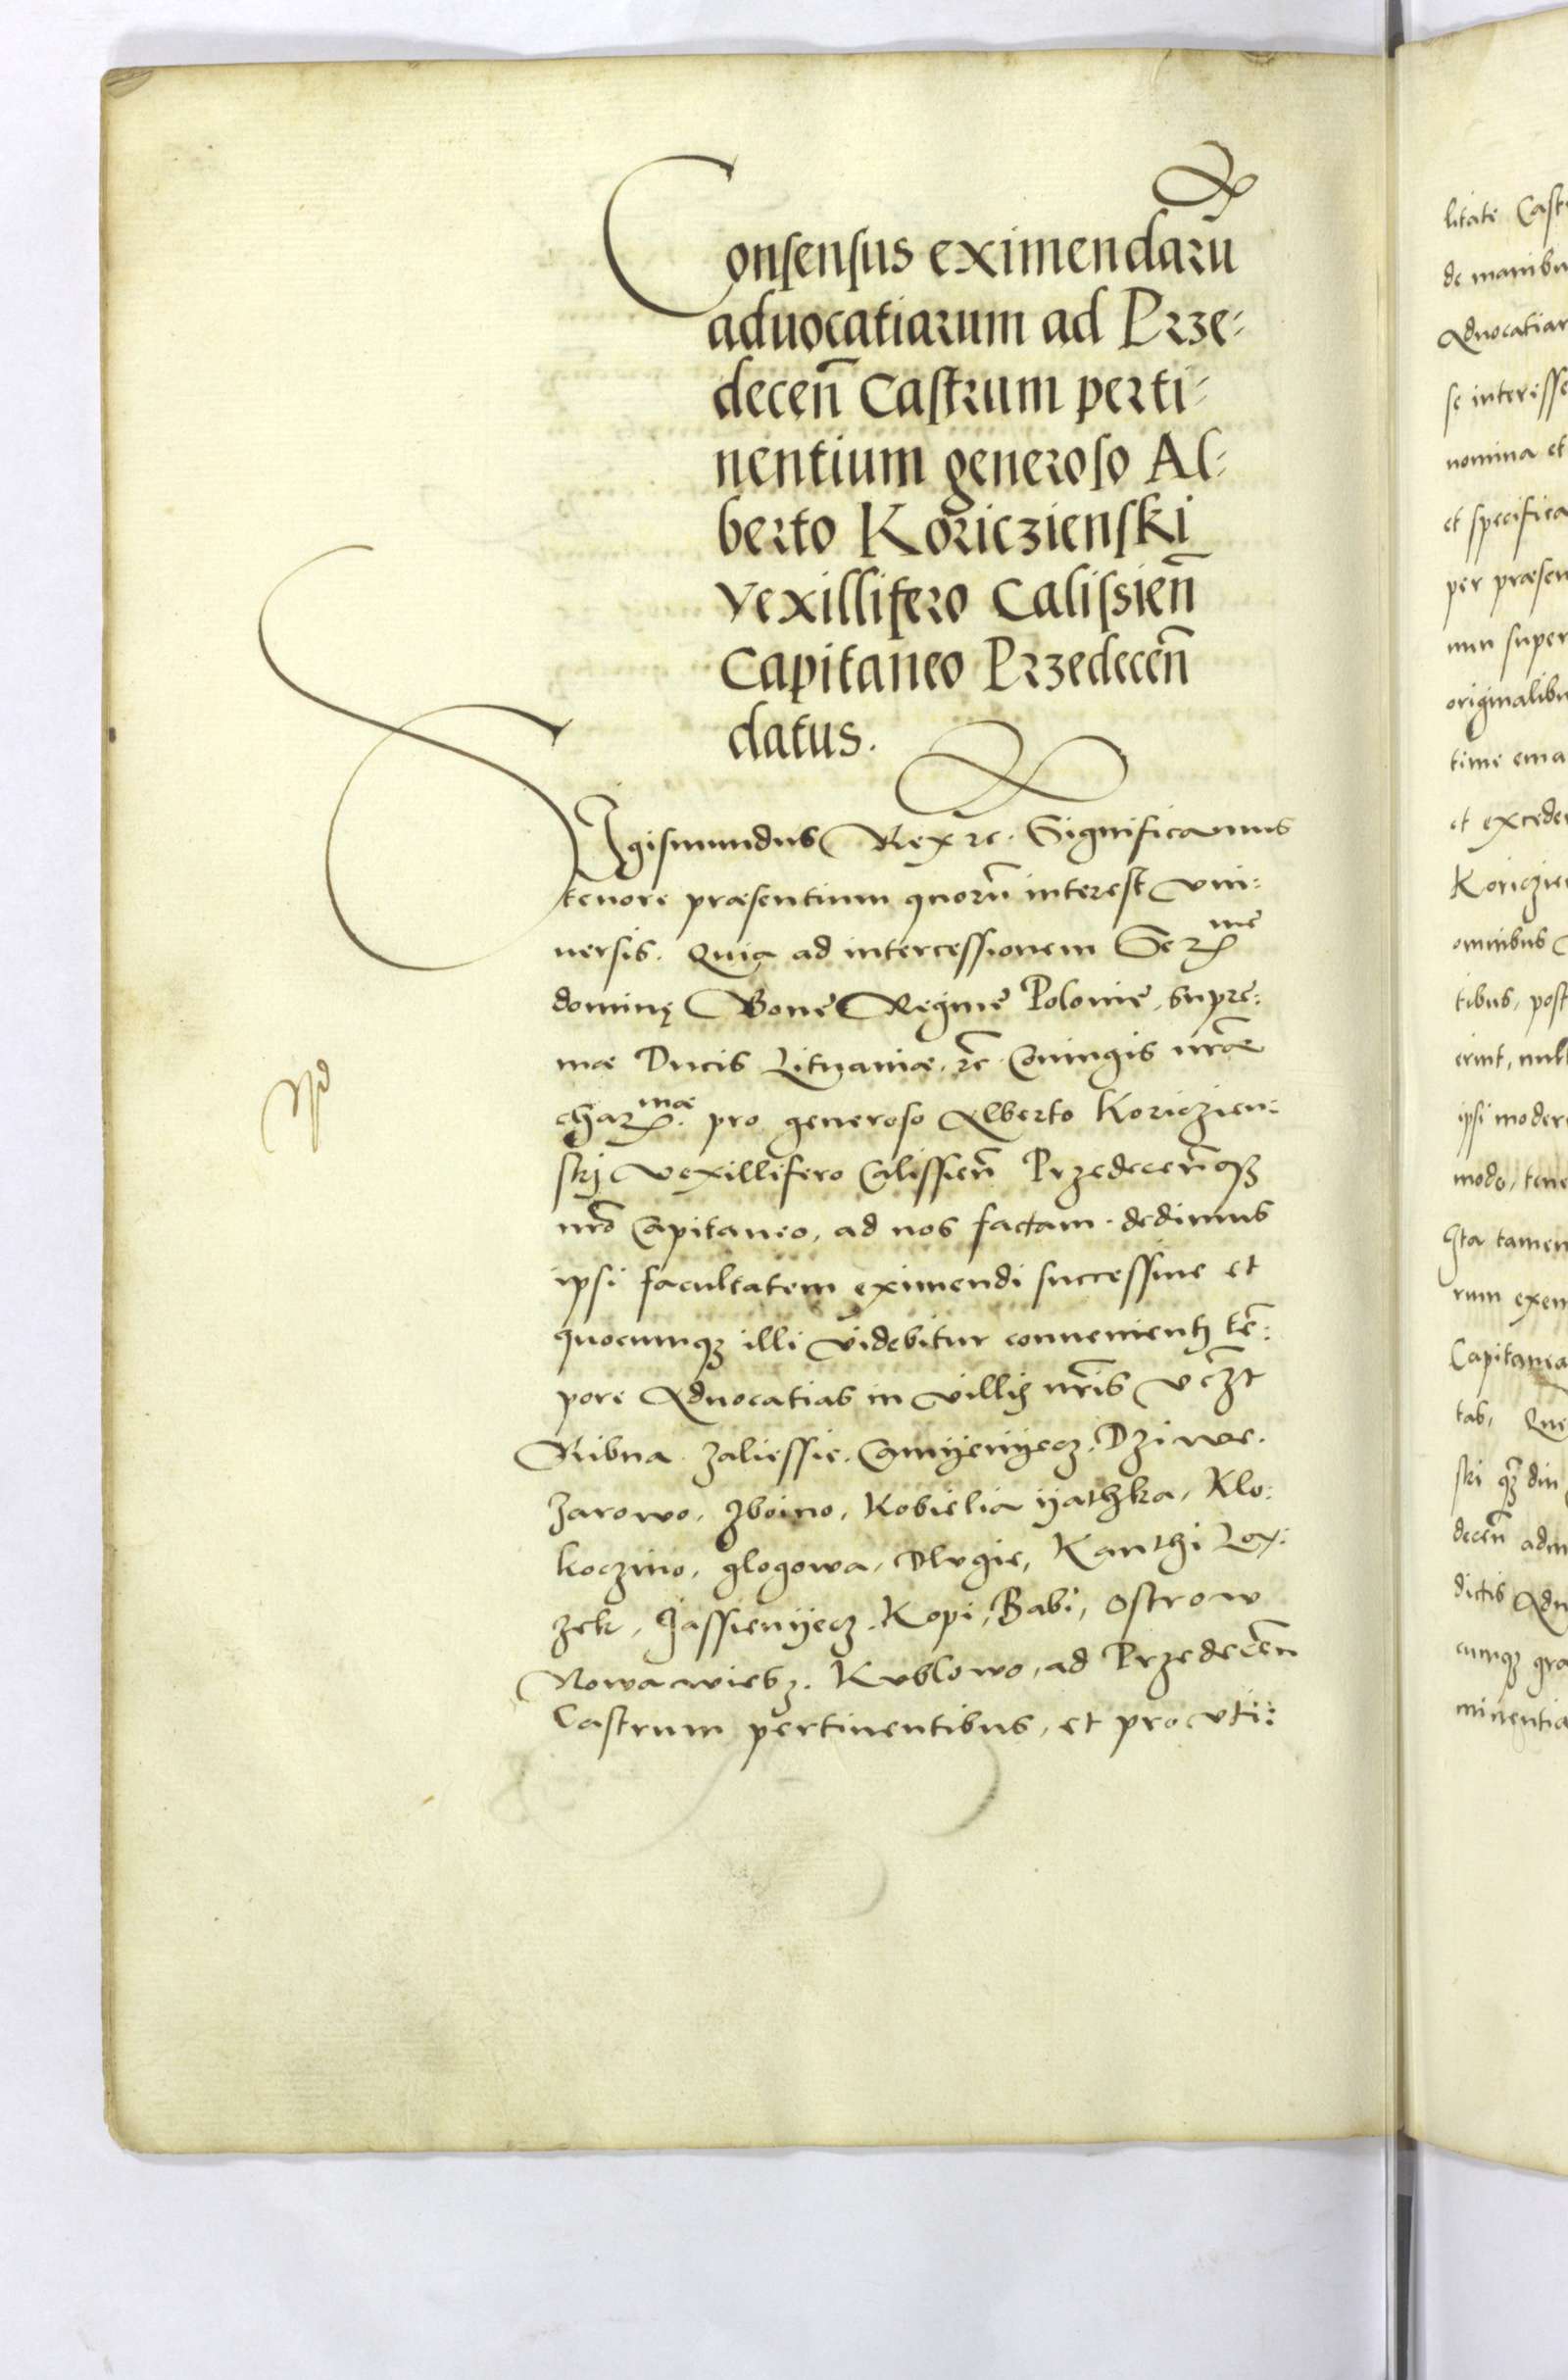 Consensus eximendarū
aduocatiarum ad Prze-
decen̄ Castrum perti-
nentium generoso Al-
berto Koriczienski
Vexillifero Calissien̄
Capitaneo Przedecen̄
datus.
Sigismundus Rex etc. Significamus
tenore præsentium quorū interest vni:
uersis. Quia ad intercessionem Ser^me
dominę Bone Regine Polonie, supre:
mæ Ducis Lituaniæ. etc̄ Coniugis nr̄æ
char^mæ. pro generoso Alberto Koriczien:
skj Vexillifero Calissien̄ Przedecen̄qȝ
nrō Capitaneo, ad nos factam. dedimus
ipsi facultatem eximendi successiue et
quocumqȝ illi videbitur conuenienti tē:
pore Aduocatias in villis nr̄is vcȝt
Ribna. Zaliessie. Camyenyecz. Dziwe.
Zarowo, Zboino, Kobielia yathzka, Klo:
koczino, glogowa, Dlvgie, Kanthi Lox:
zek, Jassienyecz. Kopi, Babi, Ostrow
Nowa wiesz. Kvblowo, ad Przedecēn
Castrum pertinentibus, et pro vti:
litate Cast
de manibu
Aduocatiar
se interisse
nomina et
et specifica
per præsen
num super
originalibu
time ema
et excede
Koriczie
omnibus
tibus, post
erint, nul
ipsi moder
modo, tene
Ita tamen
rum exem
Capitanea
tas, Que
ski qȝ din
decen̄ adm
dictis Adu
cumqȝ gra
minentia